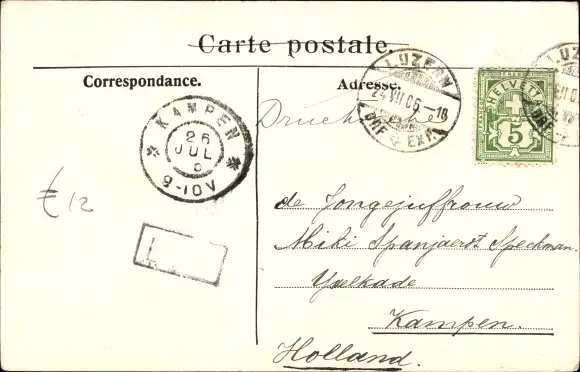 Carte postale.
Correspondance.
Adresse.
LUZERN
24.VII.06.-18
BRF. EXP.
HELVETIA
5
KAMPEN
26
JUL
6
9-10V
Drucksache
€ 12
de Jongejuffrouw
Miki Spanjaerdt Speckman.
Yselkade
Kampen.
Holland.